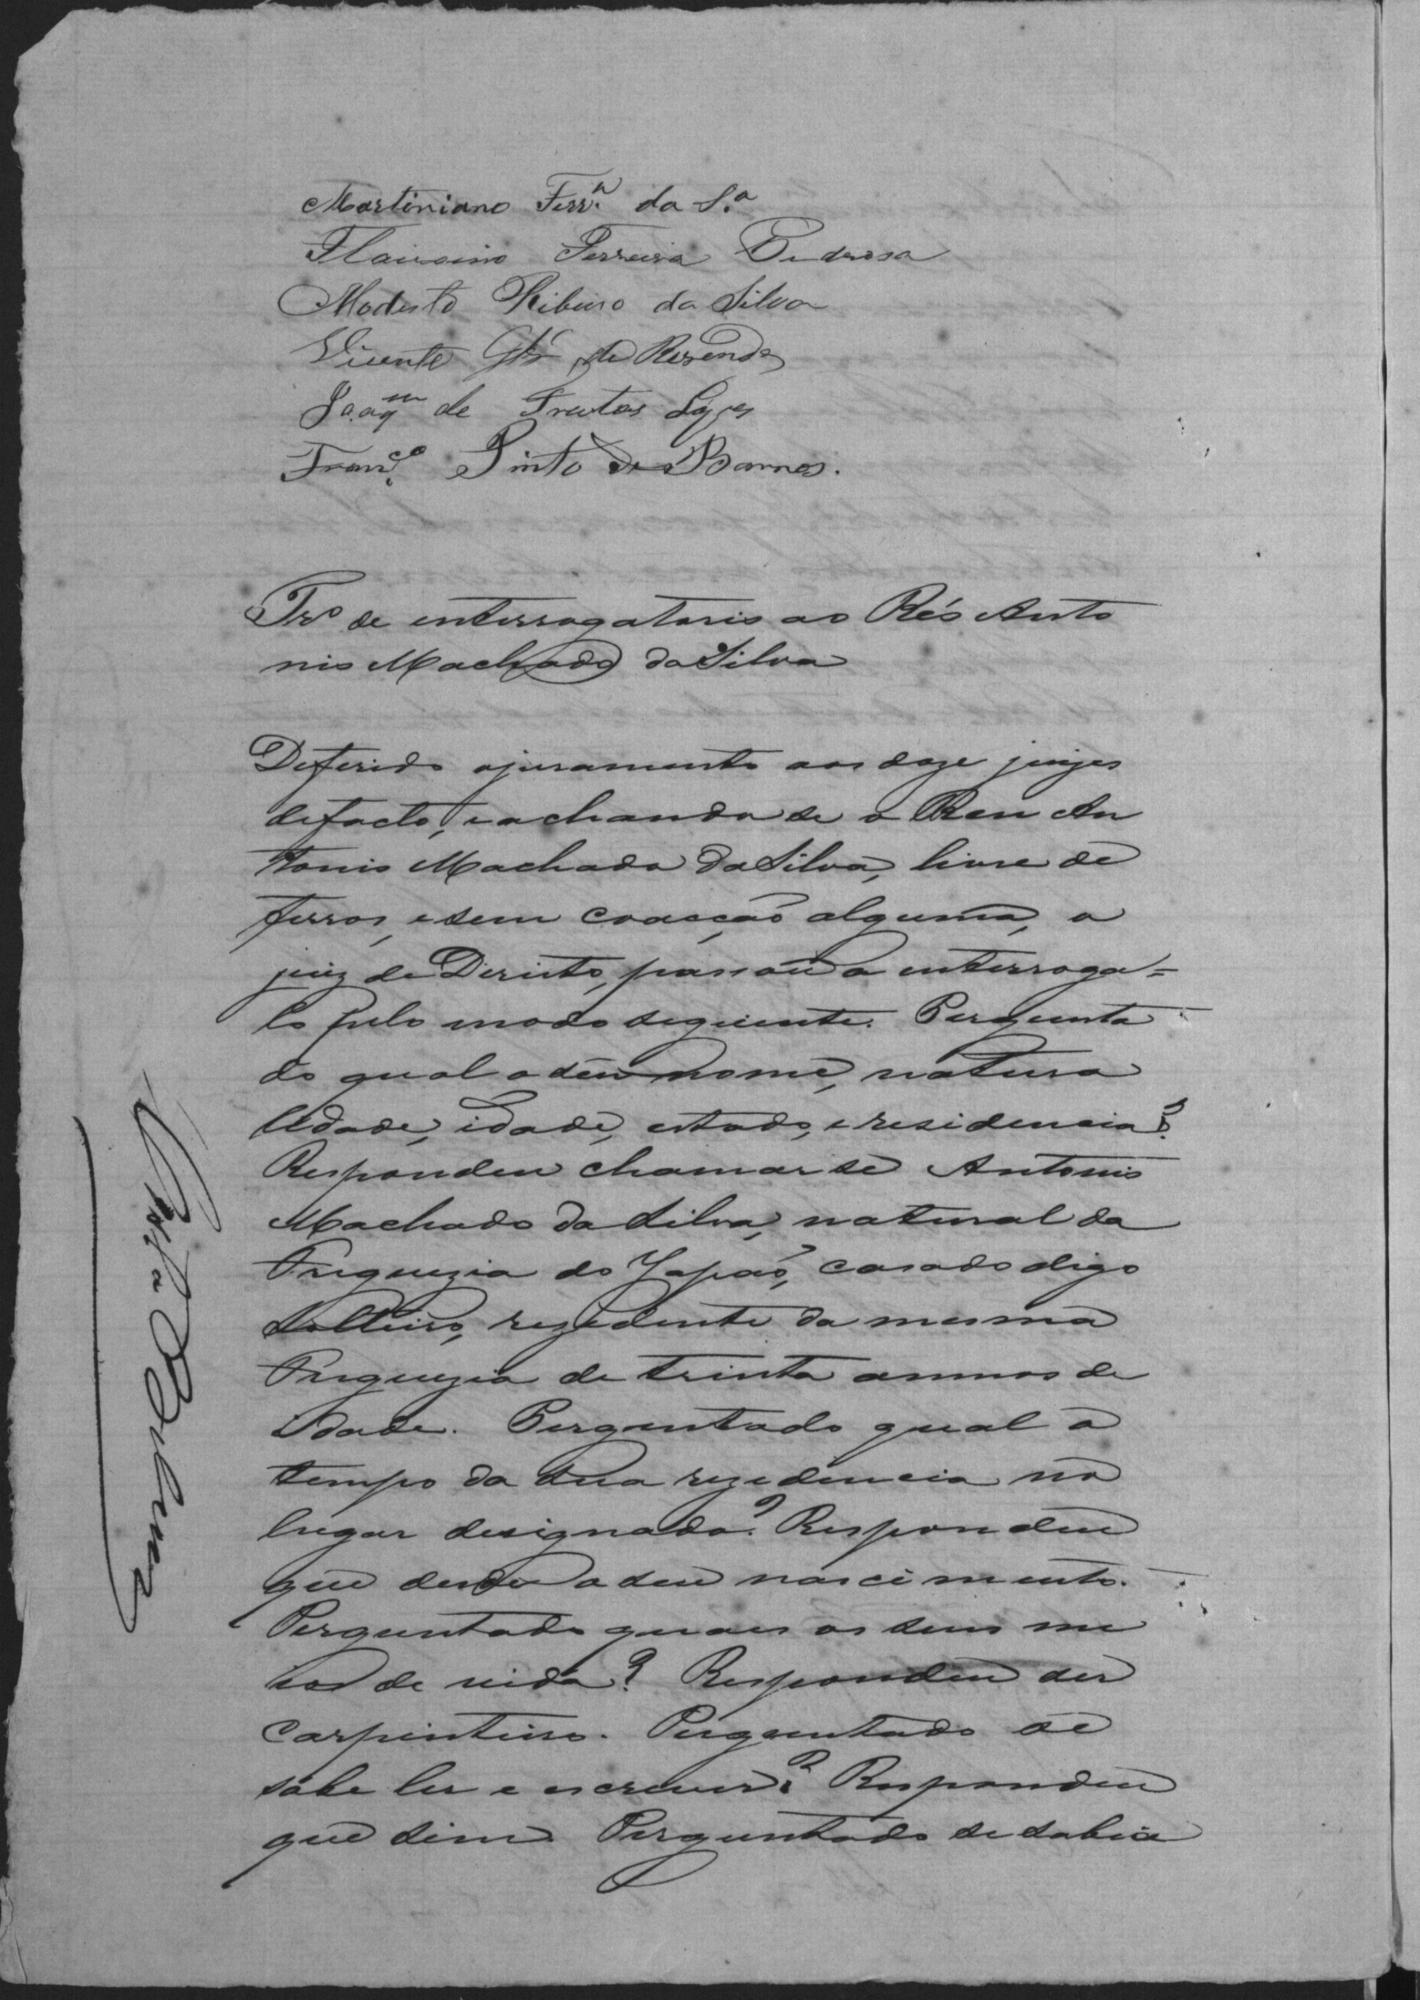 Martiniano Ferr.ª da S.ª
Ferreira Pedrosa
Modesto Ribeiro da Silva
Vicente Glz de Rezende
Joaqm de Freitas Lopes
Franco. Pinto de Barros.
Tro de interrogatorio ao Réo Anto
nio Machado da Silva
Deferido o juramento aos doze juizes
de facto, e achando se o Reu An
tonio Machado da Silva, livre de
ferros, e sem coacção alguma, o
juiz de Direito, passou a interroga=
lo pelo modo seguinte. Pergunta
do qual o seu nome, natura
lidade, idade, estado, e residencia?
Respondeu chamar se Antonio
Machado da Silva, natural da
Freguezia do Japão, casado digo
solteiro, rezedente da mesma
Freguezia de trinta annos de
idade. Perguntado qual o
tempo da sua rezedencia no
lugar designado? Respondeu
que desde o seu nascimento.
Perguntado quaes os seus me
ios de vida? Respondeu ser
carpinteiro. Perguntado se
sabe ler e escrever? Respondeu
que sim. Perguntado se sabia
Costa